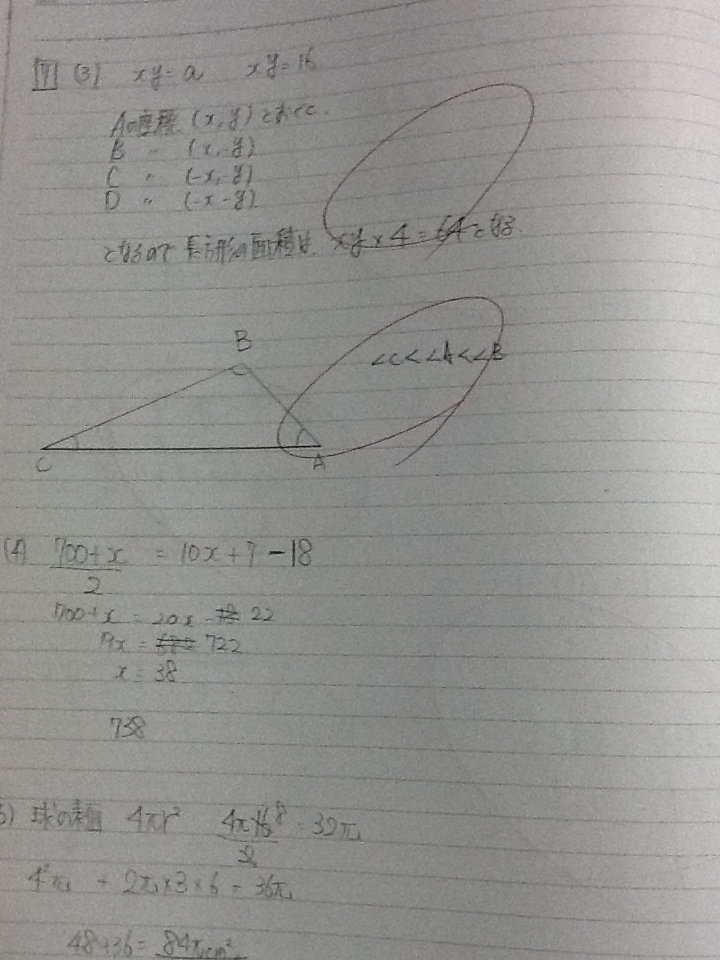 (3) xy=a xy=16
Aの座標 (x,y)とおくと.
B 〃 (x,-y)
C 〃 (-x,y)
D 〃 (-x-y)
となるので 長方形の面積は xy×4=64となる.
B
∠C<∠A<∠B
C A
(4) 700+x/2 = 10x+7-18
700+x = 20x - 22
19x = 722
x = 38
738
球の表面 4πr² = 32π
4²π + 2π×3×6 = 36π
48+36= 84πcm²